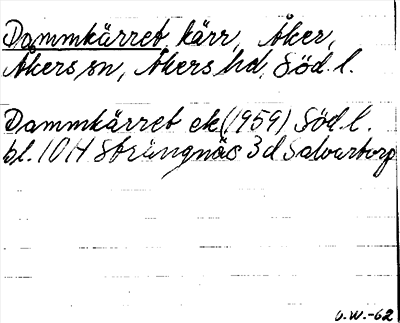 Dammkärret, kärr, Åker,
Åkers sn, Åkers hd, Söd. l.
Dammkärret ek (1959) Söd. l.
bl. 10 H Strängnäs 3 d Salvartorp
U.W.-62